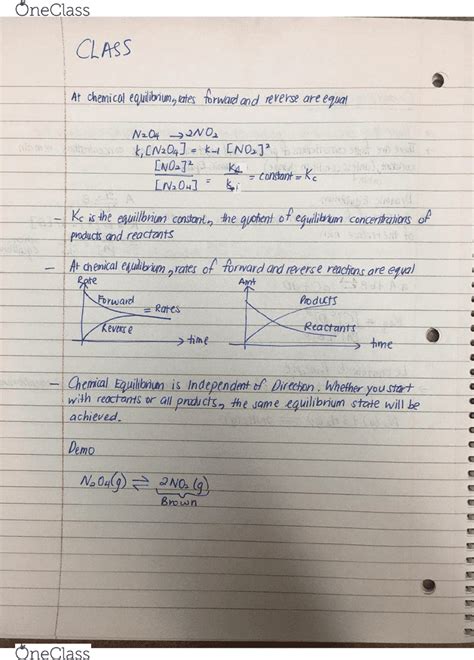 OneClass
CLASS
At chemical equilibrium, rates forward and reverse are equal
N2O4 → 2NO2
k1[N2O4] = k-1 [NO2]²
[NO2]² / [N2O4] = k1 / k-1 = constant = Kc
– Kc is the equilibrium constant, the quotient of equilibrium concentrations of
products and reactants
– At chemical equilibrium, rates of forward and reverse reactions are equal
Rate
Amt
Forward
Products
= Rates
Reverse
Reactants
time
time
– Chemical Equilibrium is Independent of Direction. Whether you start
with reactants or all products, the same equilibrium state will be
achieved.
Demo
N2O4(g) ⇌ 2NO2(g)
Brown
OneClass